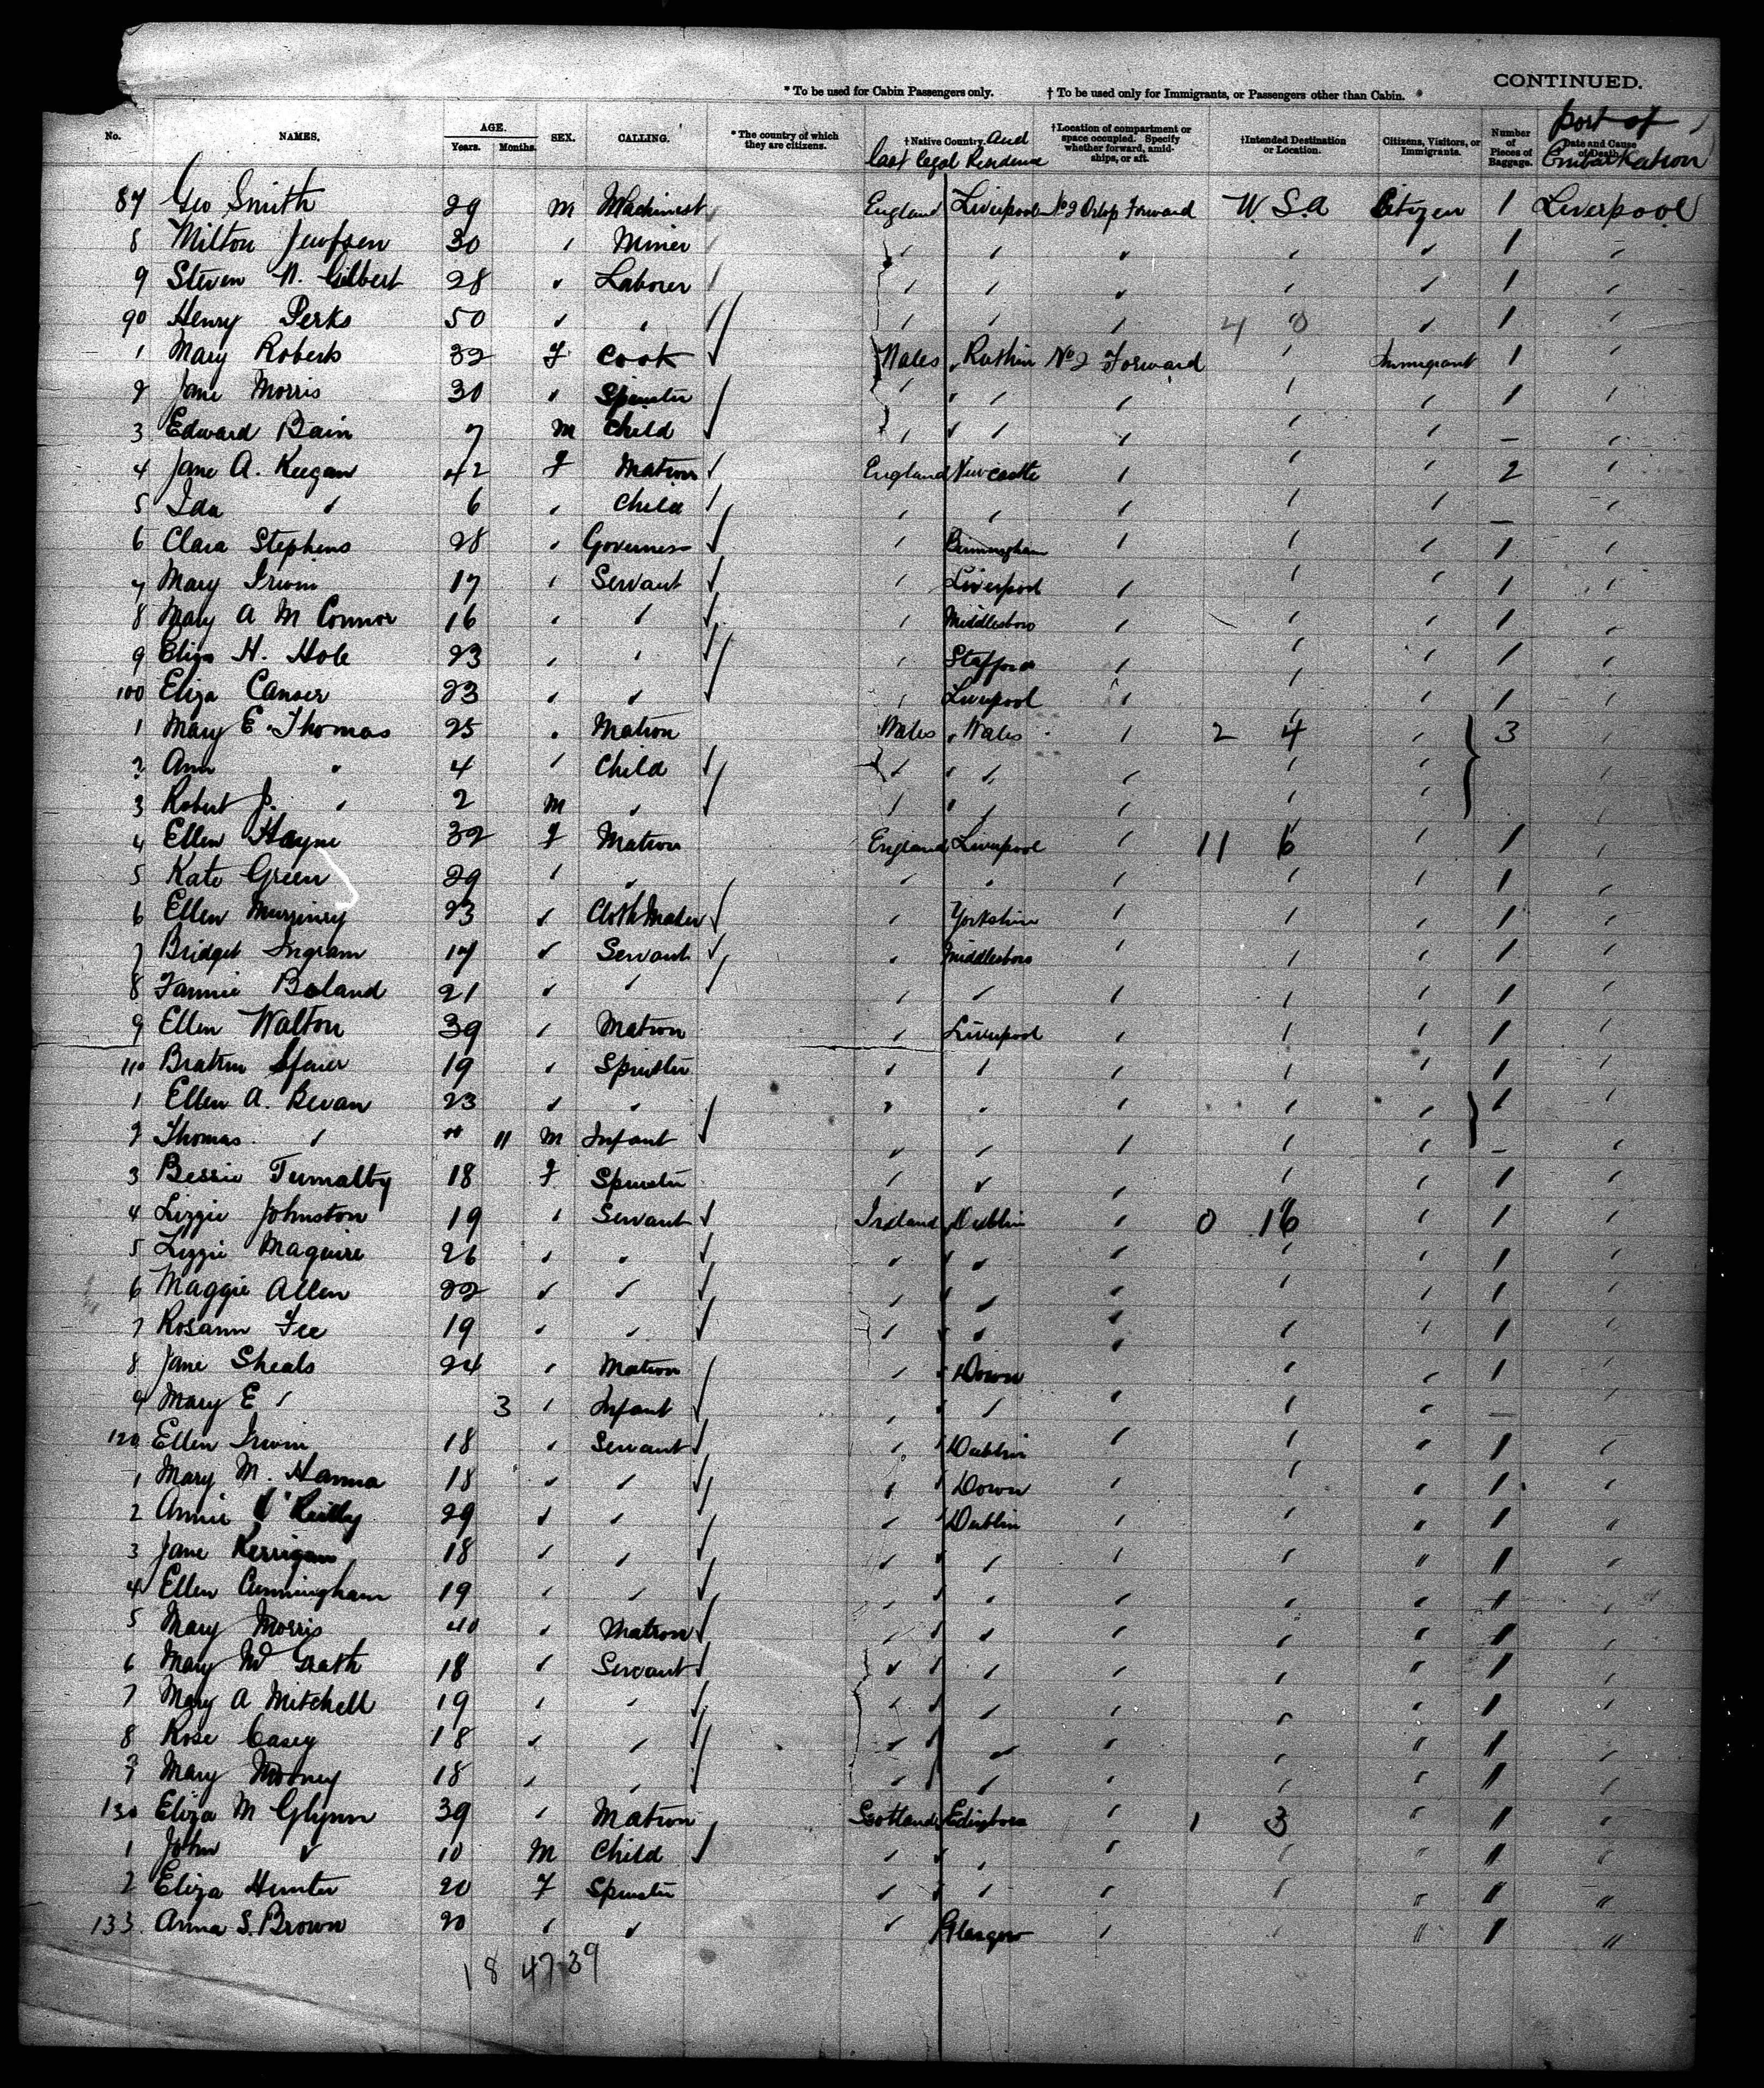 CONTINUED.
* To be used for Cabin Passengers only. † To be used only for Immigrants, or Passengers other than Cabin.
No. NAMES. AGE. Years. Months. SEX. CALLING. * The country of which they are citizens. † Native Country. and last legal Residence † Location of compartment or space occupied. Specify whether forward, amidships, or aft. † Intended Destination or Location. Citizens, Visitors, or Immigrants. Number of Pieces of Baggage. Date and Cause of Death. Port of Embarkation
87 Geo Smith 29 M Machinist England Liverpool No 2 Orlop Forward U.S.A Citizen 1 Liverpool
8 Milton 30 " Miner " " " " " 1 "
9 Steven N. Gilbert 28 " Laborer " " " " " 1 "
90 Henry Perks 50 " " " " " 4 0 " 1 "
1 Mary Roberts 32 F Cook Wales " Ruthin No 2 Forward " Immigrant 1 "
2 Jane Morris 30 " Spinster " " " " " " 1 "
3 Edward Bain 7 M Child " " " " " " - "
4 Jane A. Keegan 42 F Matron England Newcastle " " " 2 "
5 Ida " 6 " Child " " " " " - "
6 Clara Stephens 28 " Governess " Birmingham " " " 1 "
7 Mary Irwin 17 " Servant " Liverpool " " " 1 "
8 Mary A McConnor 16 " " " Middlesboro " " " 1 "
9 Eliza H. Hole 23 " " " Stafford " " " 1 "
100 Eliza 23 " " " Liverpool " " " 1 "
1 Mary E Thomas 25 " Matron Wales " Wales " 2 4 " 3 "
2 Ann " 4 " Child " " " " " " "
3 Robert J. " 2 M " " " " " " " "
4 Ellen Hayne 32 F Matron England Liverpool " 11 6 " 1 "
5 Kate Green 29 " " " " " " " 1 "
6 Ellen 23 " Cloth Maker " Yorkshire " " " 1 "
7 Bridget Ingram 17 " Servant " Middlesboro " " " 1 "
8 Fannie Boland 21 " " " " " " " 1 "
9 Ellen Walton 39 " Matron " Liverpool " " " 1 "
110 19 " Spinster " " " " " 1 "
1 Ellen A. Bevan 23 " " " " " " " 1 "
2 Thomas " " 11 M Infant " " " " " - "
3 Bessie Tumalty 18 F Spinster " " " " " 1 "
4 Lizzie Johnston 19 " Servant Ireland Dublin " 0 16 " 1 "
5 Lizzie Maguire 26 " " " " " " " " 1 "
6 Maggie Allen 22 " " " " " " " 1 "
7 Rosann Fee 19 " " " " " " " " 1 "
8 Jane Sheals 24 " Matron " " Down " " 1 "
9 Mary E " 3 " Infant " " " " " " - "
120 Ellen Irwin 18 " Servant " " Dublin " " " 1 "
1 Mary M. Hanna 18 " " " " Down " " " 1 "
2 Annie O'Reilly 29 " " " " Dublin " " " 1 "
3 Jane Kerrigan 18 " " " " " " " " 1 "
4 Ellen Cunningham 19 " " " " " " " " 1 "
5 Mary Morris 40 " Matron " " " " " " 1 "
6 Mary McGrath 18 " Servant " " " " " " 1 "
7 Mary A Mitchell 19 " " " " " " " " 1 "
8 Rose Casey 18 " " " " " " " " 1 "
9 Mary Mooney 18 " " " " " " " " 1 "
130 Eliza McGlynn 39 " Matron Scotland Edinboro " 1 3 " 1 "
1 John " 10 M Child " " " " " " 1 "
2 Eliza Hunter 20 F Spinster " " " " " " 1 "
133 Anna S. Brown 20 " " " Glasgow " " " 1 "
18 47 39